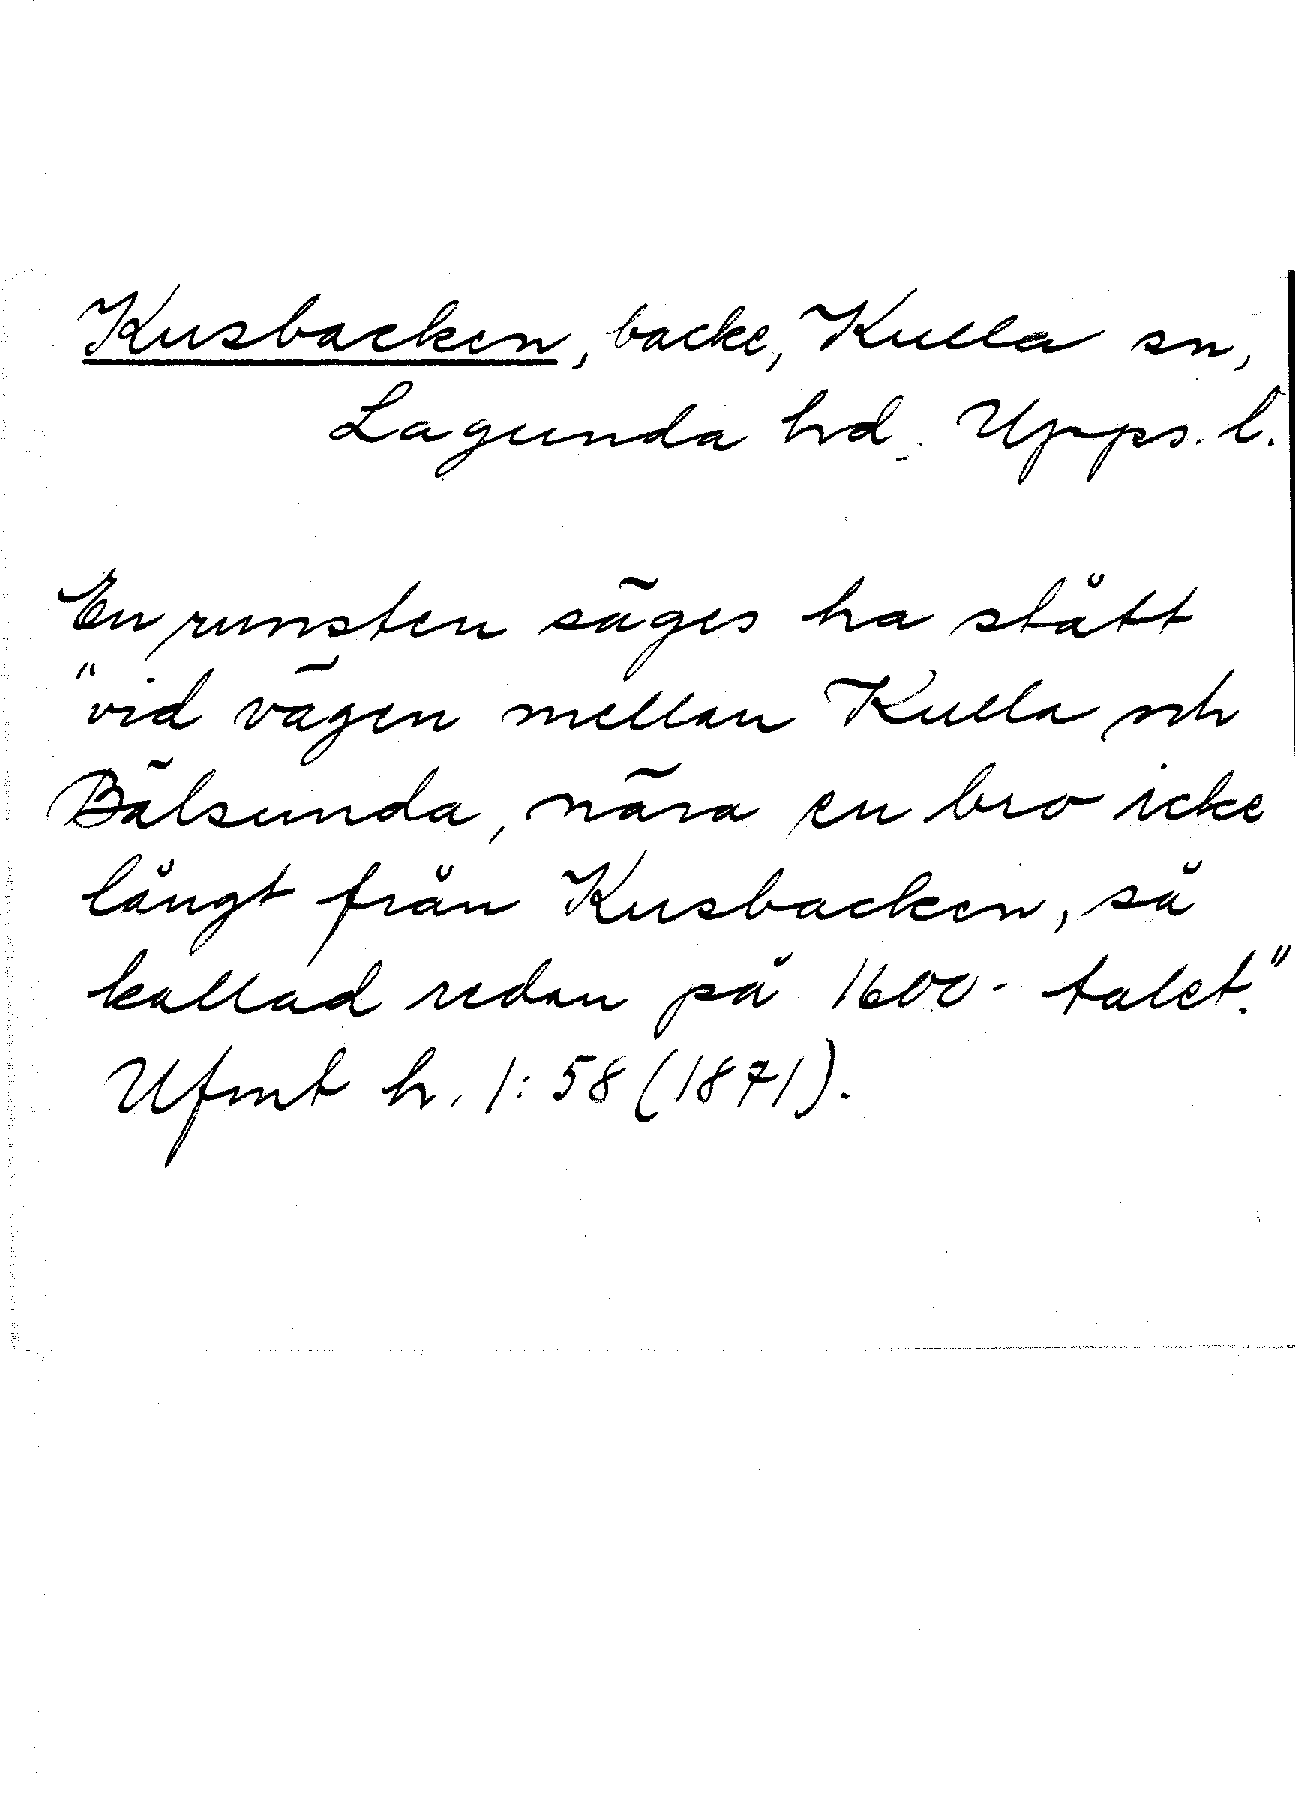 Kusbacken, backe, Kulla sn,
Lagunda hd. Upps. l.
En runsten säges ha stått
"vid vägen mellan Kulla och
Bälsunda, nära en bro icke
långt från Kusbacken, så
kallad redan på 1600-talet."
Ufmt h. 1:58 (1871).